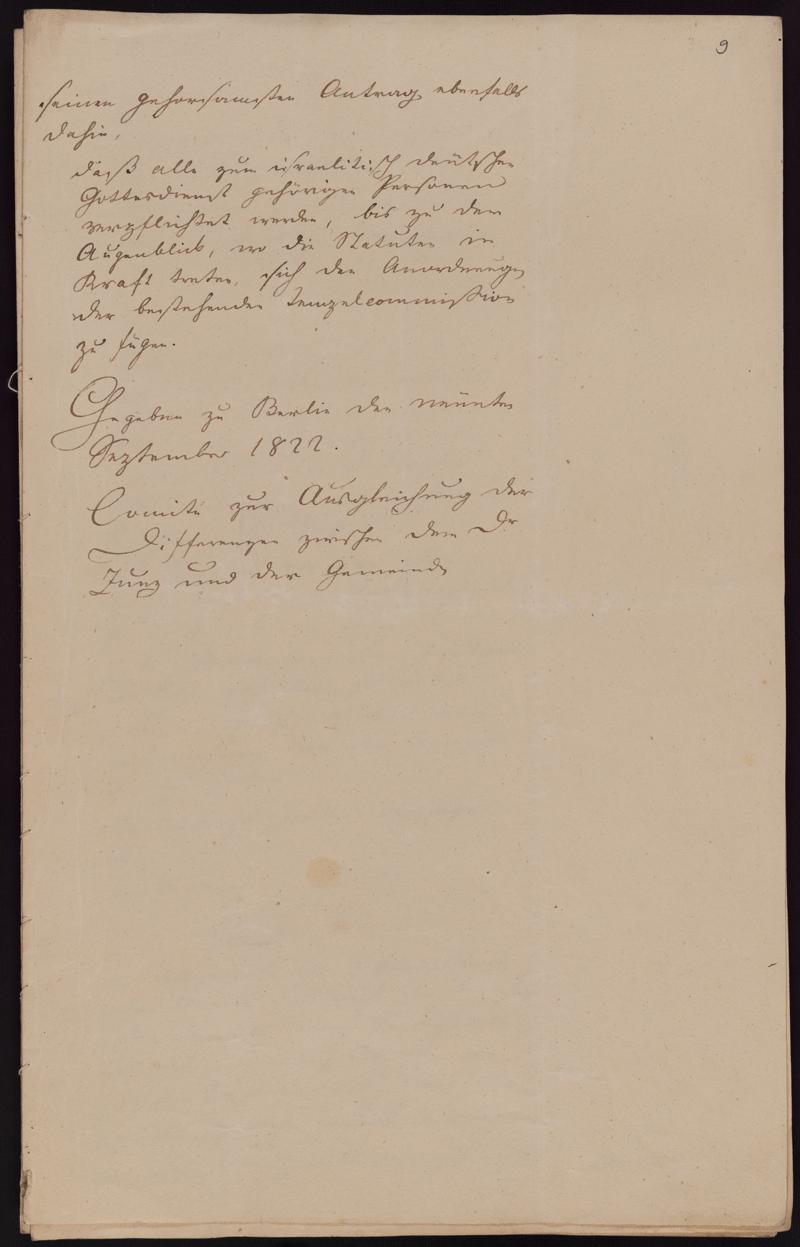 9
seinen gehorsamsten Antrag ebenfalls
dahin,
daß alle zum israelitisch deutschen
Gottesdienst gehörigen Personen
verpflichtet werden, bis zu dem
Augenblick, wo die Statuten in
Kraft treten, sich den Anordnungen
der bestehenden Tempelcommission
zu fügen.
Gegeben zu Berlin den neunten
September 1822.
Comité zur Ausgleichung der
Differenzen zwischen dem Dr
Zunz und der Gemeinde